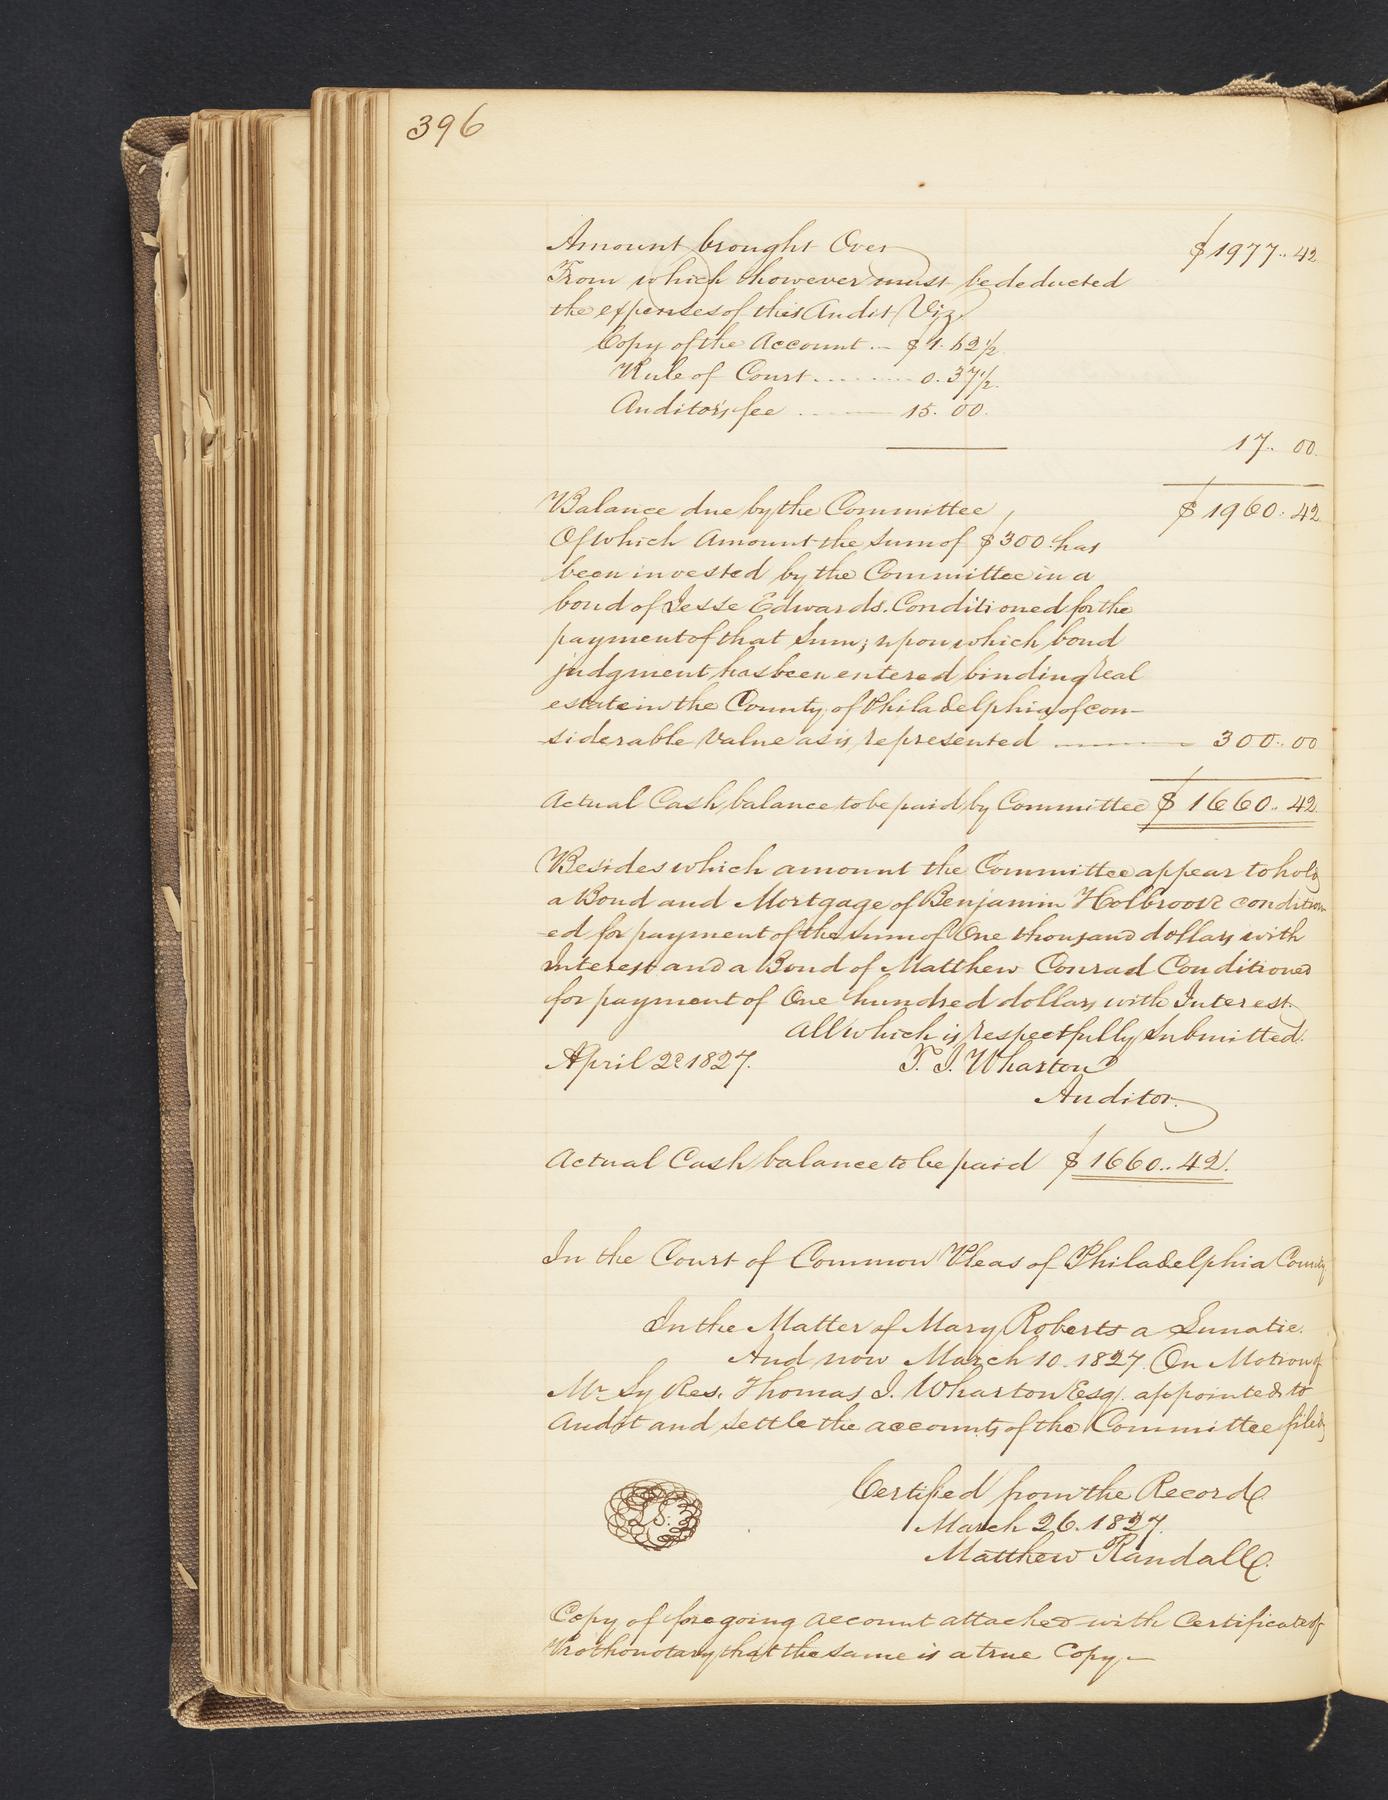 396
Amount brought Over $1977..42
From which however must be deducted
the expenses of this Audit Viz
Copy of the Account .. $1.62½
Rule of Court ........ 0.37½
Auditor's fee ........ 15.00.
17..00.
Balance due by the Committee $1960.42
Of which Amount the Sum of $300. has
been invested by the Committee in a
bond of Jesse Edwards. Conditioned for the
payment of that Sum; upon which bond
judgment has been entered binding real
estate in the County of Philadelphia, of con-
siderable value as is, represented ——— 300..00
Actual Cash balance to be paid by Committee $1660..42.
Besides which amount the Committee appear to hold
a Bond and Mortgage of Benjamin Holbrook condition
ed for payment of the sum of One thousand dollars with
interest and a Bond of Matthew Conrad Conditioned
for payment of One hundred dollars with Interest.
All which is respectfully Submitted.
April 2d 1827. T. I. Wharton
Auditor.
Actual Cash balance to be paid $1660..42.
In the Court of Common Pleas of Philadelphia County
In the Matter of Mary Roberts a Lunatic.
And now March 10. 1827. On Motion of
Mr Sykes. Thomas I. Wharton Esq. appointed to
Audit and settle the accounts of the Committee filed
Certified from the Record.
March 26. 1827.
L.S.
Matthew Randall.
Copy of foregoing account attached with Certificate of
Prothonotary that the same is a true Copy.—